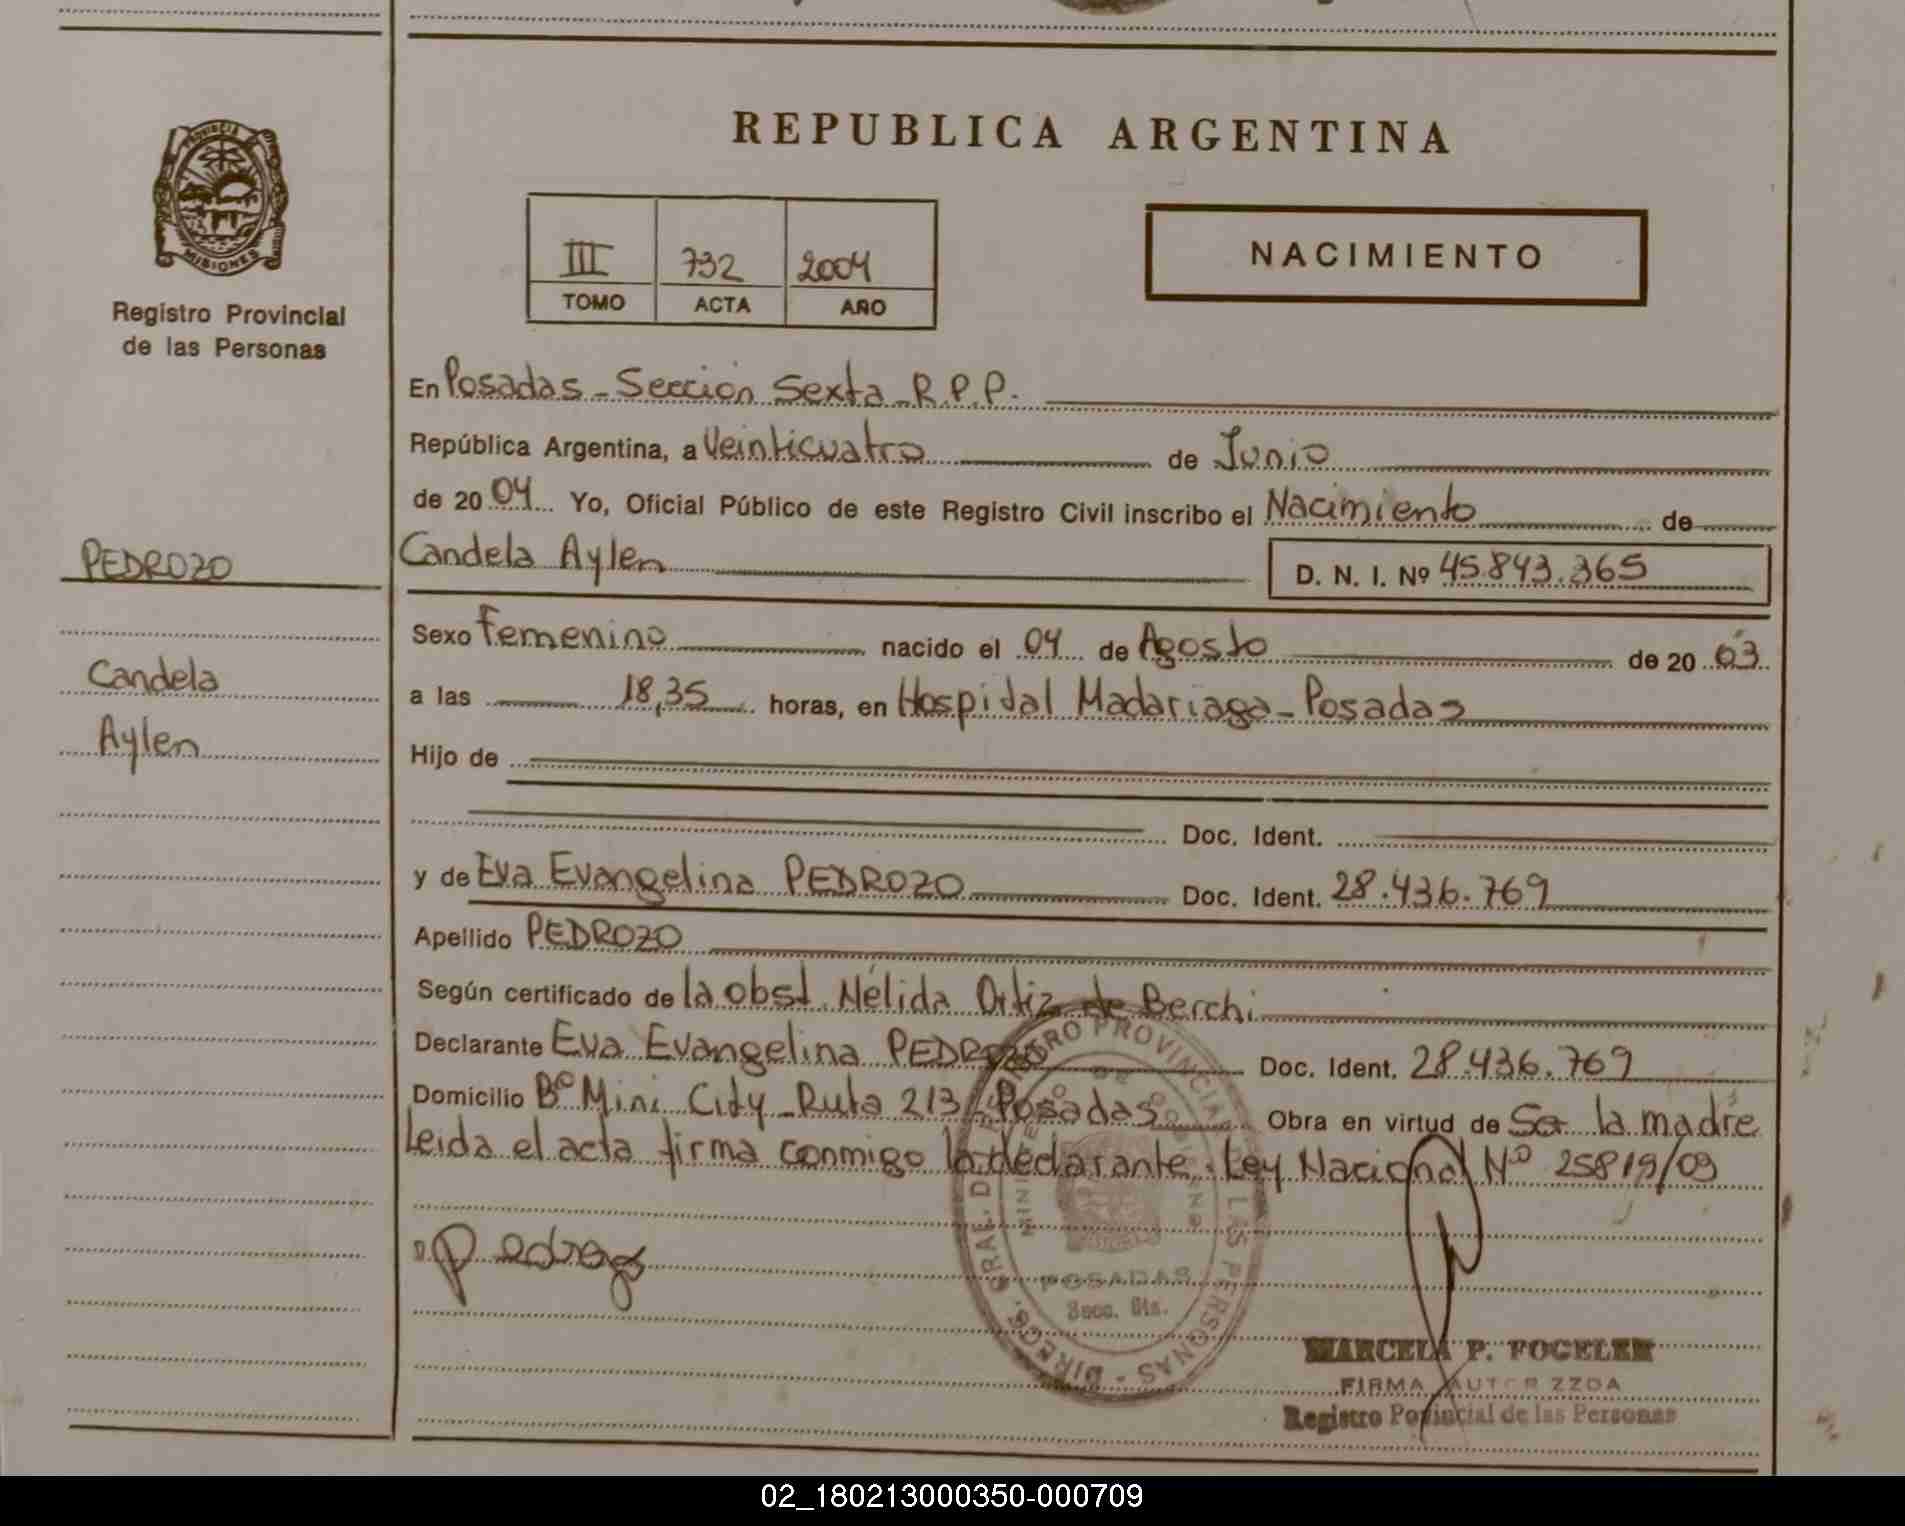 PROVINCIA
MISIONES
Registro Provincial
de las Personas
PEDROZO
Candela
Aylen
REPUBLICA ARGENTINA
III 732 2004
TOMO ACTA AÑO
NACIMIENTO
En Posadas - Sección Sexta - R.P.P.
República Argentina, a Veinticuatro de Junio
de 2004 Yo, Oficial Público de este Registro Civil inscribo el Nacimiento de
Candela Aylen D. N. I. Nº 45.843.365
Sexo Femenino nacido el 04 de Agosto de 2003
a las 18,35 horas, en Hospital Madariaga - Posadas
Hijo de
Doc. Ident.
y de Eva Evangelina PEDROZO Doc. Ident. 28.436.769
Apellido PEDROZO
Según certificado de la obst. Nélida Ortiz de Berchi
Declarante Eva Evangelina PEDROZO Doc. Ident. 28.436.769
Domicilio Bº Mini City - Ruta 213 - Posadas Obra en virtud de Ser la madre
Leida el acta firma conmigo la declarante. Ley Nacional Nº 25819/03
Pedrozo
DIRECC. GRAL. DEL REGISTRO PROVINCIAL DE LAS PERSONAS
MINISTERIO DE GOBIERNO
POSADAS
Secc. 6ta.
MARCELA P. FOGELER
FIRMA AUTORIZZDA
Registro Povincial de las Personas
02_180213000350-000709